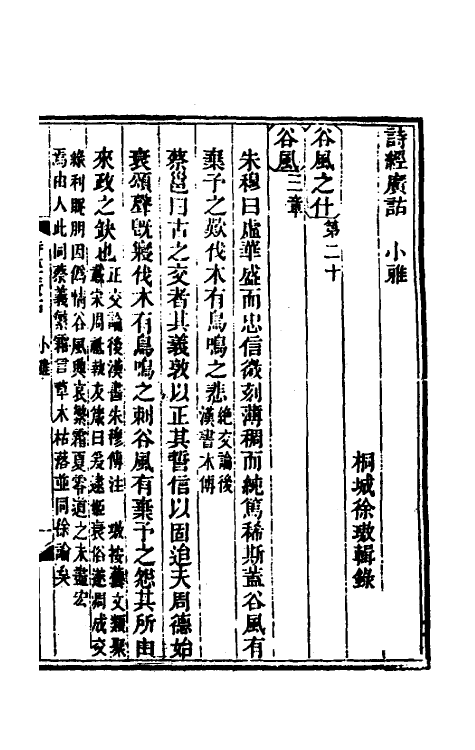 詩經廣詁 小雅
桐城徐璈輯錄
谷風之什 第二十
谷風三章
朱穆曰虛華盛而忠信微刻薄稠而純篤稀斯蓋谷風有
棄予之歎伐木有鳥鳴之悲絕交論後漢書本傳
蔡邕曰古之交者其義敦以正其誓信以固迨夫周德始
衰頌聲既寢伐木有鳥鳴之刺谷風有棄予之怨其所由
來政之缺也正交論後漢書朱穆傳注 璈按藝文類聚
載宋周祗執友箴曰爰逮姬衰俗遂凋成交
緣利暌朋因僞情谷風興哀繁霜夏零道之未盡宏
焉由人此同蔡義繁霜言草木枯落並同徐論矣
小雅